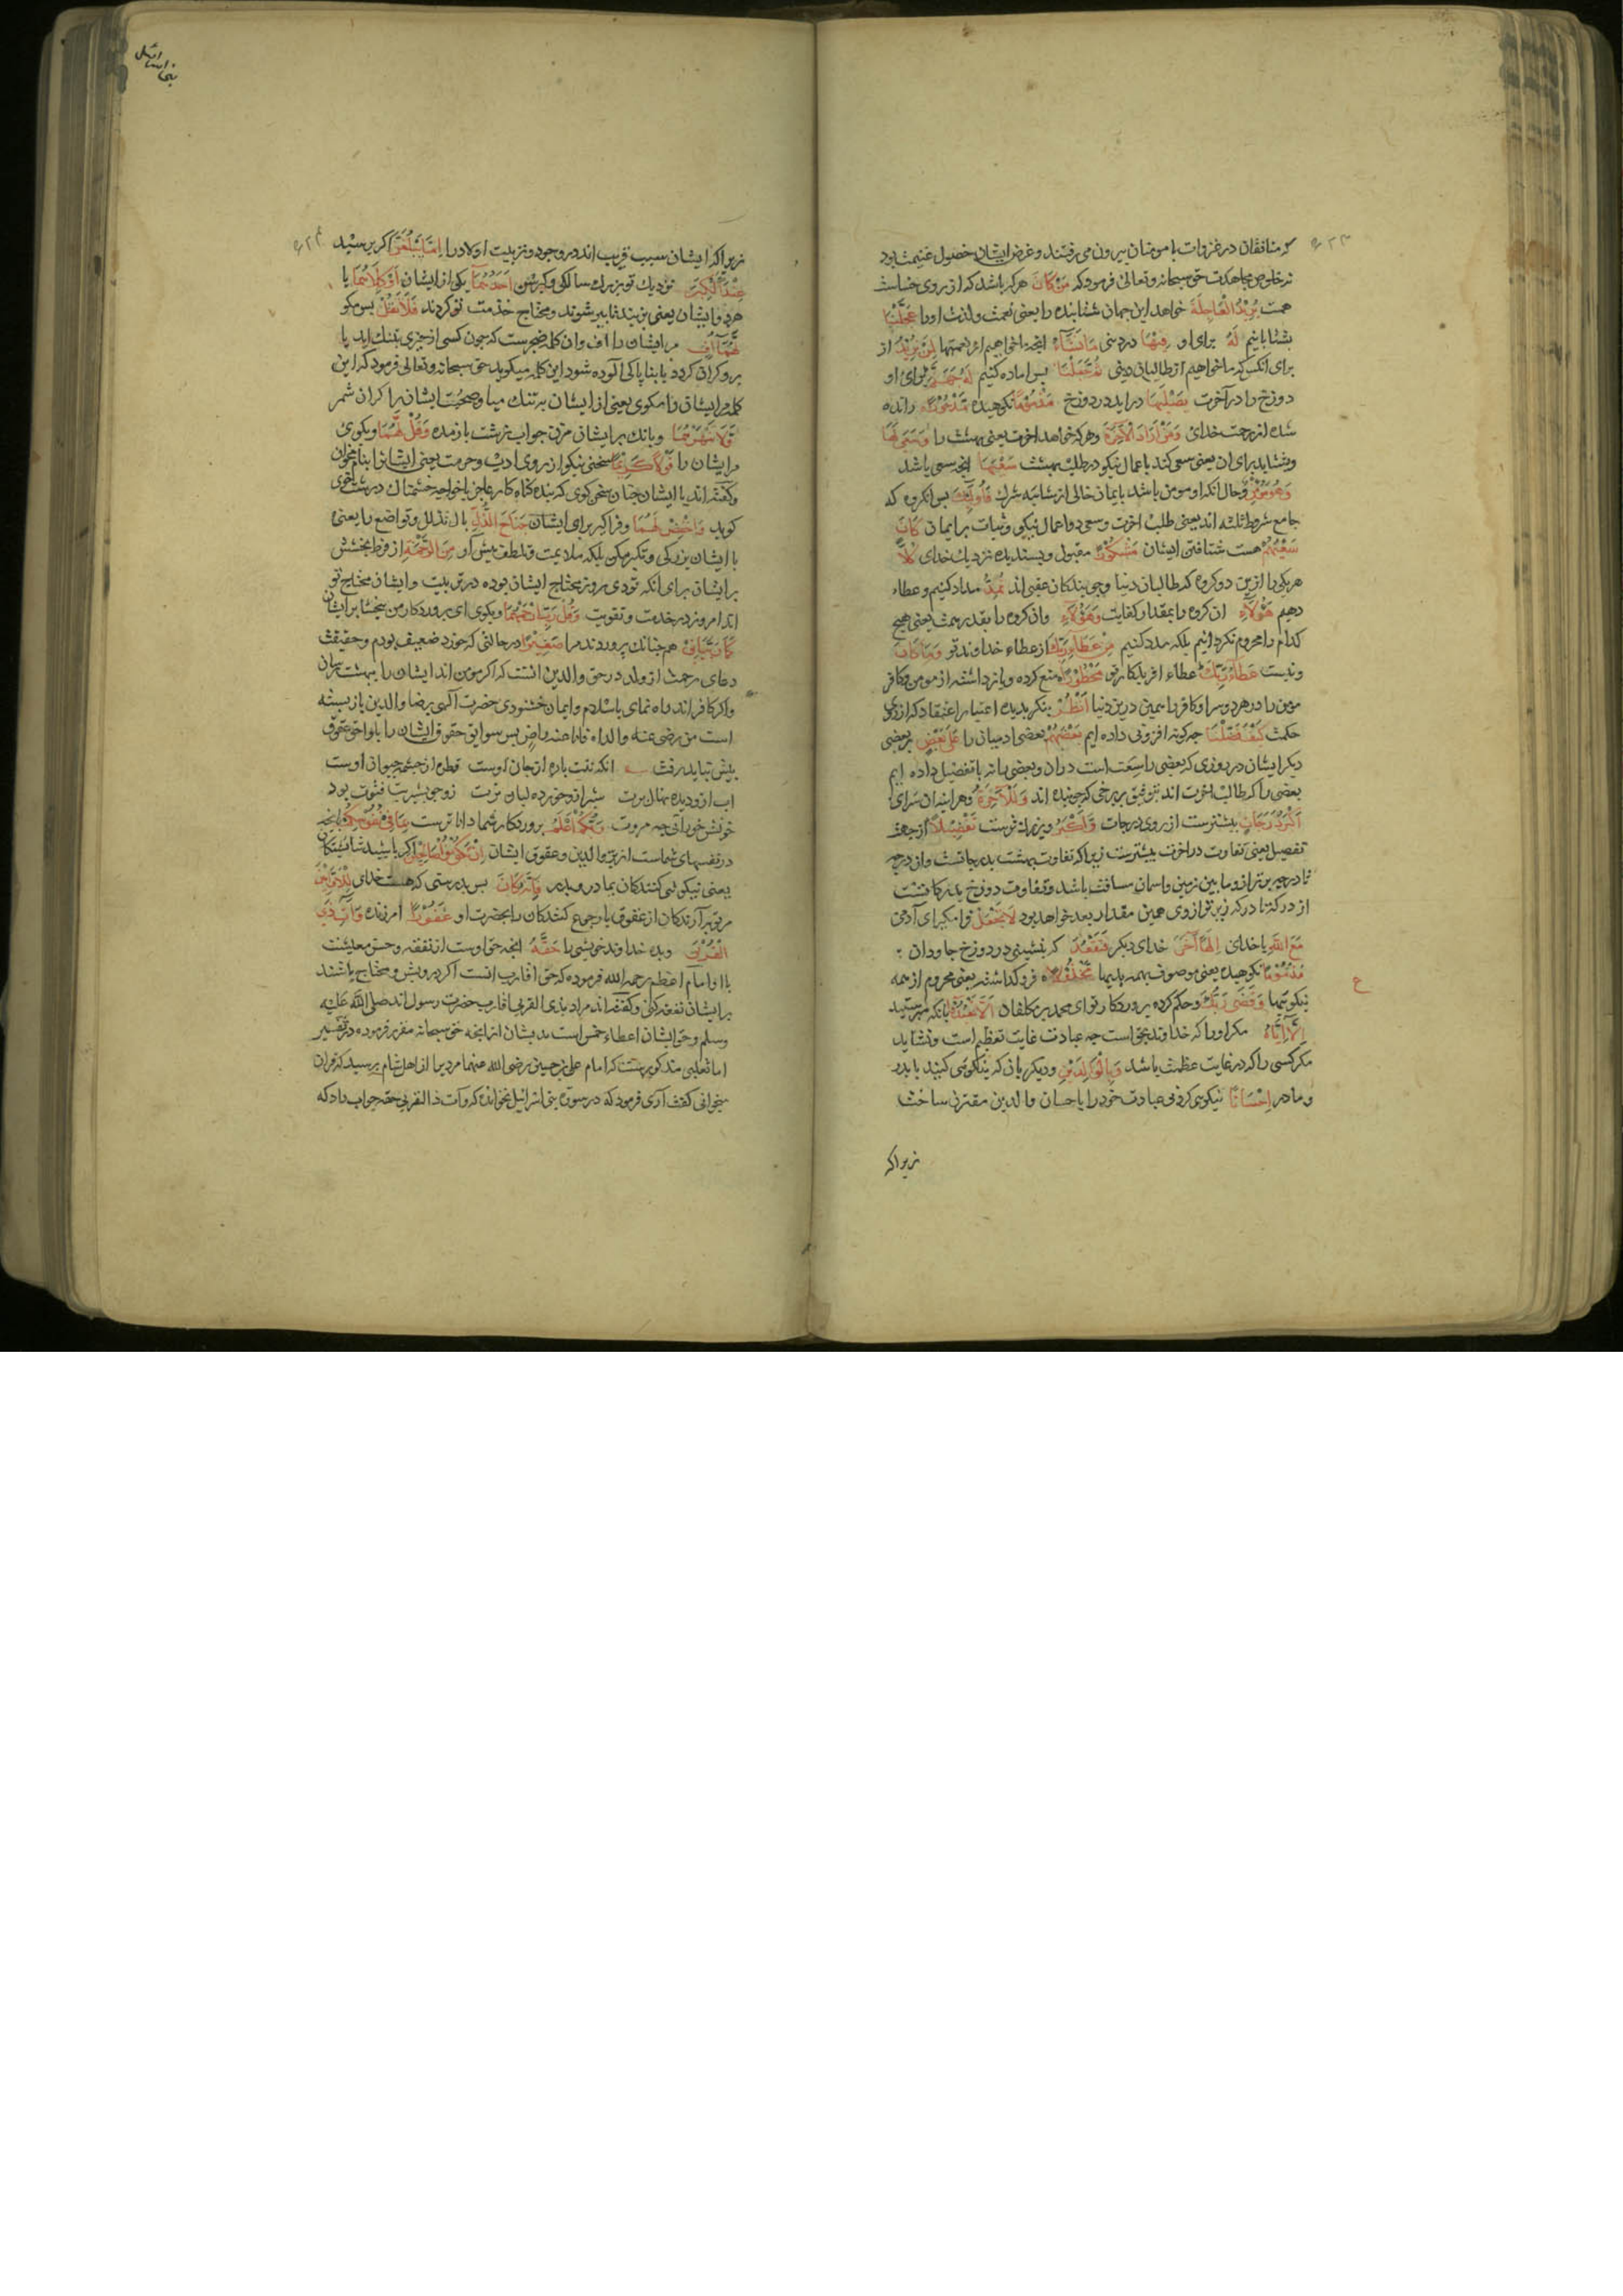 که منافقان در غزوات با مومنان بیرون می رفتند و غرض ایشان حصول غنیمت بود
نه خلوص مجاهدت حق سبحانه و تعالی فرمود که مَنْ كَانَ هر که باشد که از روی خساست
همت يُرِيدُ الْعَاجِلَةَ خواهد این جهان شتابنده را یعنی نعمت و لذت او را عَجَّلْنَا
بشتابانیم لَهُ برای او فِيهَا در دنیی مَا نَشَاءُ آنچه خواهیم از نعمتها لِمَنْ نُرِيدُ از
برای انکس که ما خواهیم از طالبان دینی ثُمَّ جَعَلْنَا پس اماده کنیم لَهُ جَهَنَّمَ برای او
دوزخ را در آخرت يَصْلَيهَا در اید در دوزخ مَذْمُومًا نکوهیده مَدْحُورًا رانده
شده از رحمت خدای وَمَنْ اَرَادَ الْآخِرَةَ و هر که خواهد اخرت یعنی بهشت را وَسَعَى لَهَا
وبشتابد برای ان یعنی سعی کند باعمال نیکو در طلب بهشت سَعْيَهَا انچه سعی باشد
وَهُوَ مُؤْمِنٌ و حال انکه او مومن باشد بایمان خالی از شائبه شرك فَاُولَئِكَ پس انکروه که
جامع شروط ثلثه اند یعنی طلب اخرت و سعی در اعمال نیکو و ثبات بر ایمان كَانَ
سَعْيُهُمْ هست شتافتن ایشان مَشْكُورًا مقبول و پسندیده نزدیك خدای كُلًّا
هر یکی را ازین دو کروه که طالبان دنیا و جویندکان عقبی اند نُمِدُّ مدد کنیم و عطاء
دهیم هَؤُلَاءِ ان کروه را بمقدار کفایت وَهَؤُلَاءِ وان کروه را بقدر همت یعنی هیچ
کدام را محروم نکردانیم بلکه مدد کنیم مِنْ عَطَاءِ رَبِّكَ از عطاء خداوند تو وَمَا كَانَ
و نیست عَطَاءُ رَبِّكَ عطاء افریدکار تو مَحْظُورًا منع کرده و باز داشته از مومن و کافر
مومن را در هر دو سرا و کافر را همین درین دنیا اُنْظُرْ بنکر بدیده اعتبار اعتقاد که از روی
حکمت كَيْفَ فَضَّلْنَا چه کونه افزونی داده ایم بَعْضَهُمْ بعضی ادمیان را عَلَى بَعْضٍ بر بعضی
دیکر ایشان در روزی که بعضی را سعت است دران و بعضی را نه یا تفضیل داده ایم
بعضی را که طالب اخرت اند بتوفیق بر برخی که جوینده اند وَلَلْآخِرَةُ و هر اینه ان سرای
اَكْبَرُ دَرَجَاتٍ بیشترست از روی درجات وَاَكْبَرُ و بزرك ترست تَفْضِيلًا از جهت
تفصیل یعنی تفاوت در اخرت بیشترست زیرا که تفاوت بهشت بدرجاتست و از درجه
تا درجه برتر از و ما بین زمین و اسمان مسافت باشد و تفاوت دوزخ بدرکاتست
از درکه تا درکه زیرتر از وی همین مقدار بعد خواهد بود لَا تَجْعَلْ فرا مکیر ای آدمی
مَعَ اللّٰهِ با خدای اِلَهًا آخَرَ خدای دیکر فَتَقْعُدَ که بنشینی در دوزخ جاودان
مَذْمُومًا نکوهیده یعنی موصوف بهمه بدیها مَخْذُولًا فرو کذاشته یعنی محروم از همه
نیکوییها وَقَضَى رَبُّكَ و حکم کرده پروردکار تو ای محمد بر مکلفان اَلَّا تَعْبُدُوا بانکه مپرستید
اِلَّا اِيَّاهُ مکر او را که خداوند بحق است چه عبادت غایت تعظیم است و نشاید
مکر کسی را که در غایت عظمت باشد وَبِالْوَالِدَيْنِ و دیکر بانکه نیکویی کنید با پدر
و مادر اِحْسَانًا نیکویی کردنی عبادت خود را با حسان والدین مقترن ساخت
زیرا که
ع
بنی اسرائیل
زیرا که ایشان سبب قریب اند در وجود و تربیت اولاد را اِمَّا يَبْلُغَنَّ اکر برسند
عِنْدَكَ الْكِبَرَ نزدیك تو بزرك سالکی و کبر سن اَحَدُهُمَا یکی از ایشان اَوْ كِلَاهُمَا یا
هر دو ایشان یعنی بزیند تا پیر شوند و محتاج خدمت تو کردند فَلَا تَقُلْ پس مکو
لَهُمَا اُفٍّ مر ایشان را اف وان کلمه ضجرست که چون کسی از چیزی بتنك اید یا
برو کران کردد یا بناپاکی آلوده شود این کلمه میکوید حق سبحانه و تعالی فرمود که این
کلمه مر ایشان را مکوی یعنی از ایشان به تنك میا و صحبت ایشان را کران شمر
وَلَا تَنْهَرْهُمَا وبانك بر ایشان مزن جواب زشت باز مده وَقُلْ لَهُمَا و بکوی
مر ایشان را قَوْلًا كَرِيمًا سخنی نیکو از روی ادب و حرمت یعنی ایشانرا بنام مخوان
و کفته اند با ایشان چنان سخن کوی که بنده کناه کار عاجز با خواجه خشمناك درشت خوی
کوید وَاخْفِضْ لَهُمَا و فرا کیر برای ایشان جَنَاحَ الذُّلِّ بال تذلل و تواضع را یعنی
با ایشان بزرکی و تکبر مکن بلکه ملایمت و تلطف پیش آور مِنَ الرَّحْمَةِ از فرط بخشش
بر ایشان برای انکه تو دی روز محتاج ایشان بوده در تربیت و ایشان محتاج تو
اند امروز در خدمت و تقویت وَقُلْ رَبِّ ارْحَمْهُمَا و بکوی ای پروردکار من ببخشا بر ایشان
كَمَا رَبَّيَانِي هم چنانك پروردند مرا صَغِيرًا در حالتی که خورد ضعیف بودم و حقیقت
دعای رحمت از ولد در حق والدین انست که اکر مومن اند ایشان را ببهشت رسان
واکر کافر اند راه نمای باسلام و ایمان خشنودی حضرت آلهی برضا والدین باز بسته
است من رضی عنه والداه فانا عنه راض پس سوابق حقوق ایشان را بلواحق عقوق
پیش نباید رفت انکه تنت پاره از جان اوست قطره از چشمه حیوان اوست
خونش خورانی چه مروت رَبُّكُمْ اَعْلَمُ پروردکار شما دانا ترست بِمَا فِي نُفُوسِكُمْ بانچه
در نفسهای شماست از بر والدین و عقوق ایشان اِنْ تَكُونُوا صَالِحِينَ اکر باشید شایستکان
یعنی نیکویی کنندکان بمادر و پدر فَاِنَّهُ كَانَ پس بدرستی که هست خدای لِلْاَوَّابِينَ
مر توبه آرندکان از عقوق یا رجوع کنندکان را بحضرت او غَفُورًا امرزنده وَآتِ ذَا
الْقُرْبَى و بده خداوند خویشی را حَقَّهُ انچه حق اوست از نفقه و حسن معیشت
با او امام اعظم رحمه الله فرموده که حق اقارب انست اکر درویش و محتاج باشند
بر ایشان نفقه کنی و کفته اند مراد بذی القربی اقارب حضرت رسول اند صلی الله علیه
وسلم و حق ایشان اعطاء خمس است بدیشان از انچه حق سبحانه مقرر فرموده در تفسیر
اما ثعلبی مذکورهست که امام علی بن حسین رضی الله عنهما مردی را از اهل شام پرسید که قران
میخوانی کفت آری فرمود که در سوره بنی اسرائیل نخوانده که وآت ذا القربی حقه جواب داد که